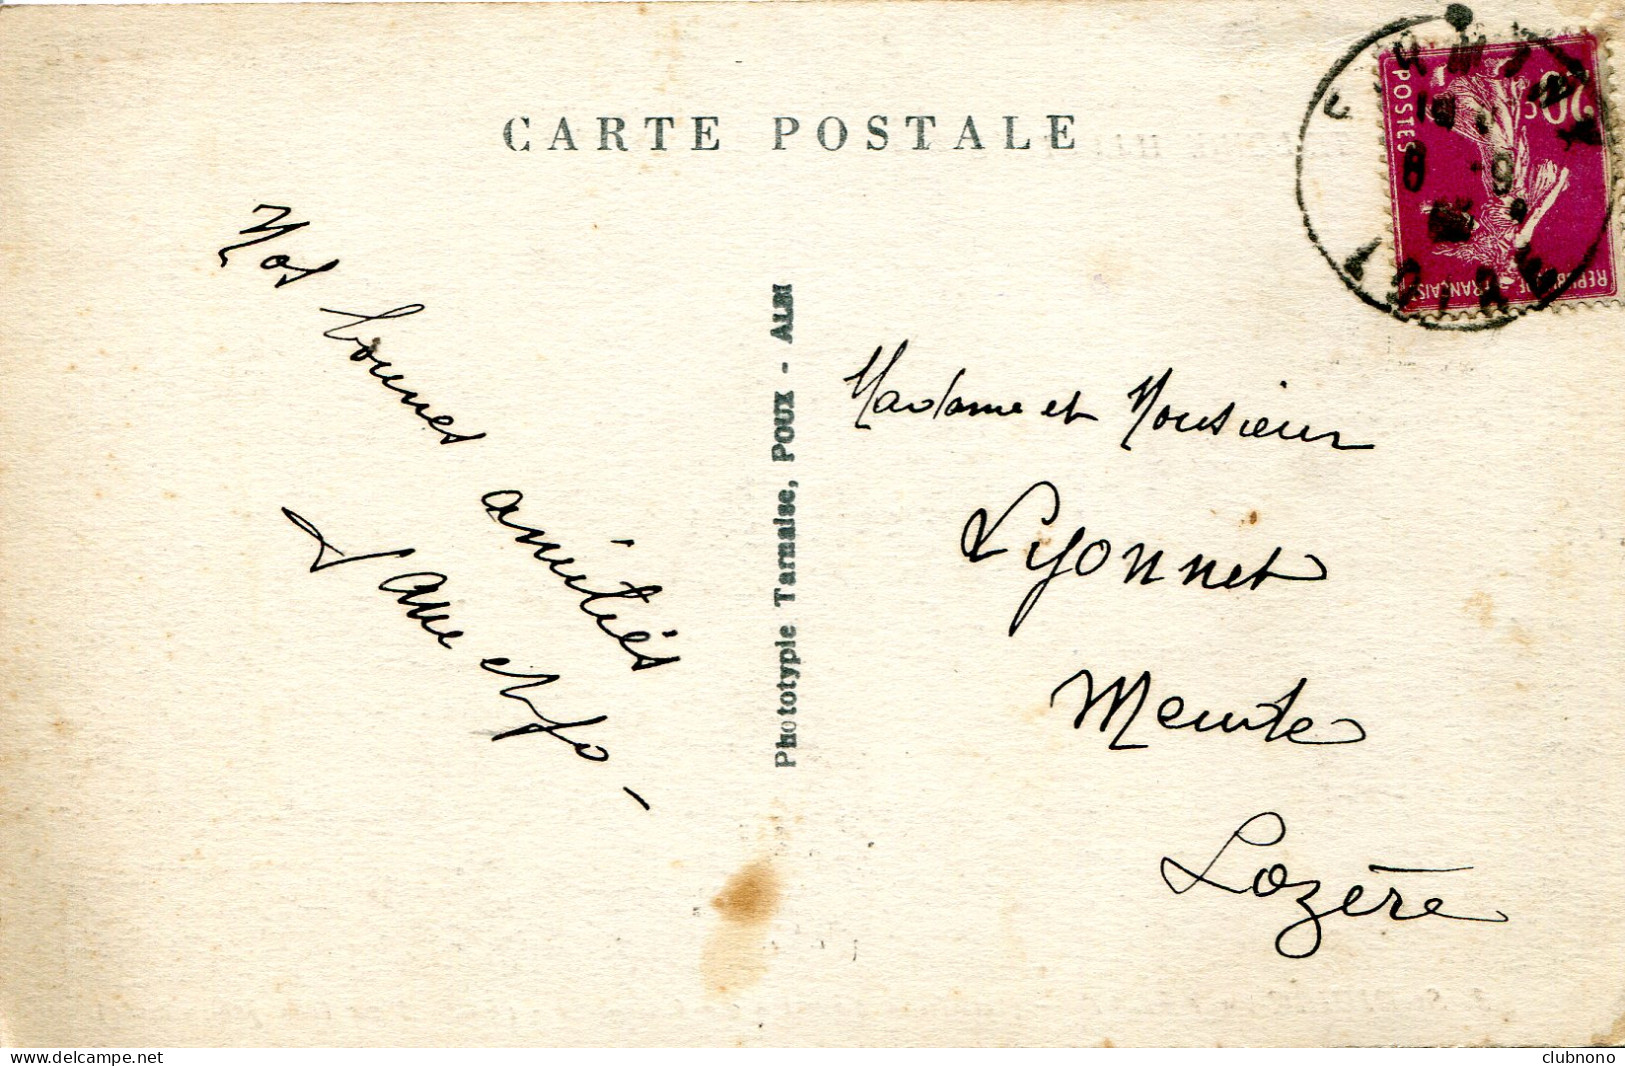 CARTE POSTALE
POSTES
20c
REPUBLIQUE FRANÇAISE
LOIRE
Nos bonnes
amitiés
et Jo -
Phototypie Tarnaise, POUX - ALBI
Madame et Monsieur
Lyonnet
Mende
Lozère
delcampe.net
clubnono